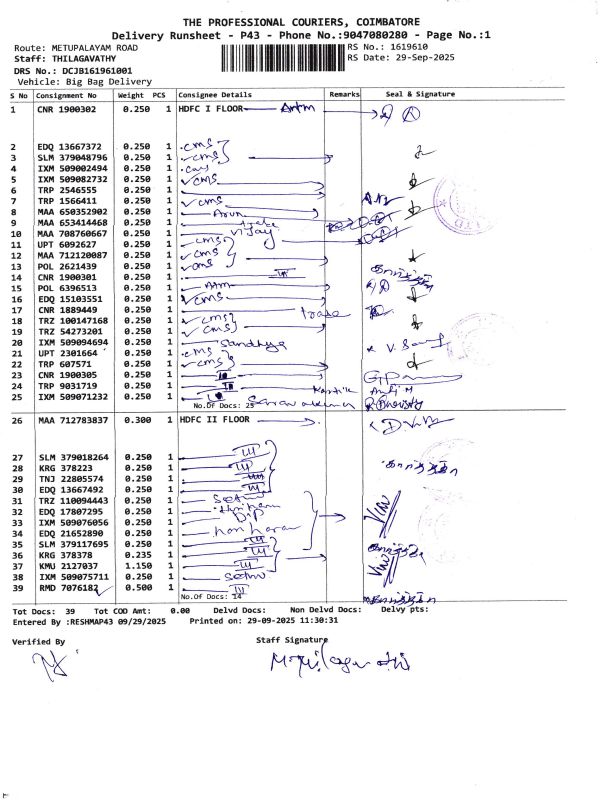 THE PROFESSIONAL COURIERS, COIMBATORE
Delivery Runsheet - P43 - Phone No.:9047080280 - Page No.:1
Route: METUPALAYAM ROAD RS No.: 1619610
Staff: THILAGAVATHY RS Date: 29-Sep-2025
DRS No.: DCJB161961001
Vehicle: Big Bag Delivery
S No Consignment No Weight PCS Consignee Details Remarks Seal & Signature
1 CNR 1900302 0.250 1 HDFC I FLOOR
2 EDQ 13667372 0.250 1 cms
3 SLM 379048796 0.250 1 cms
4 IXM 509002494 0.250 1
5 IXM 509082732 0.250 1 cms
6 TRP 2546555 0.250 1
7 TRP 1566411 0.250 1 cms
8 MAA 650352902 0.250 1 Arun
9 MAA 653414468 0.250 1
10 MAA 708760667 0.250 1 vijay
11 UPT 6092627 0.250 1 cms
12 MAA 712120087 0.250 1 cms
13 POL 2621439 0.250 1 cms
14 CNR 1900301 0.250 1 III
15 POL 6396513 0.250 1
16 EDQ 15103551 0.250 1 cms
17 CNR 1889449 0.250 1 trade
18 TRZ 100147168 0.250 1 cms
19 TRZ 54273201 0.250 1 cms
20 IXM 509094694 0.250 1 Sandhya
21 UPT 2301664 0.250 1 cms
22 TRP 607571 0.250 1 cms
23 CNR 1900305 0.250 1
24 TRP 9031719 0.250 1 Karthik
25 IXM 509071232 0.250 1
No.Of Docs: 25
26 MAA 712783837 0.300 1 HDFC II FLOOR
27 SLM 379018264 0.250 1 III
28 KRG 378223 0.250 1 III
29 TNJ 22805574 0.250 1 III
30 EDQ 13667492 0.250 1 III
31 TRZ 110094443 0.250 1
32 EDQ 17807295 0.250 1
33 IXM 509076056 0.250 1 Dip
34 EDQ 21652890 0.250 1 hariharan
35 SLM 379117695 0.250 1 III
36 KRG 378378 0.235 1 III
37 KMU 2127037 1.150 1 III
38 IXM 509075711 0.250 1
39 RMD 7076182 0.500 1 III
No.Of Docs: 14
Tot Docs: 39 Tot COD Amt: 0.00 Delvd Docs: Non Delvd Docs: Delvy pts:
Entered By :RESHMAP43 09/29/2025 Printed on: 29-09-2025 11:30:31
Verified By Staff Signature